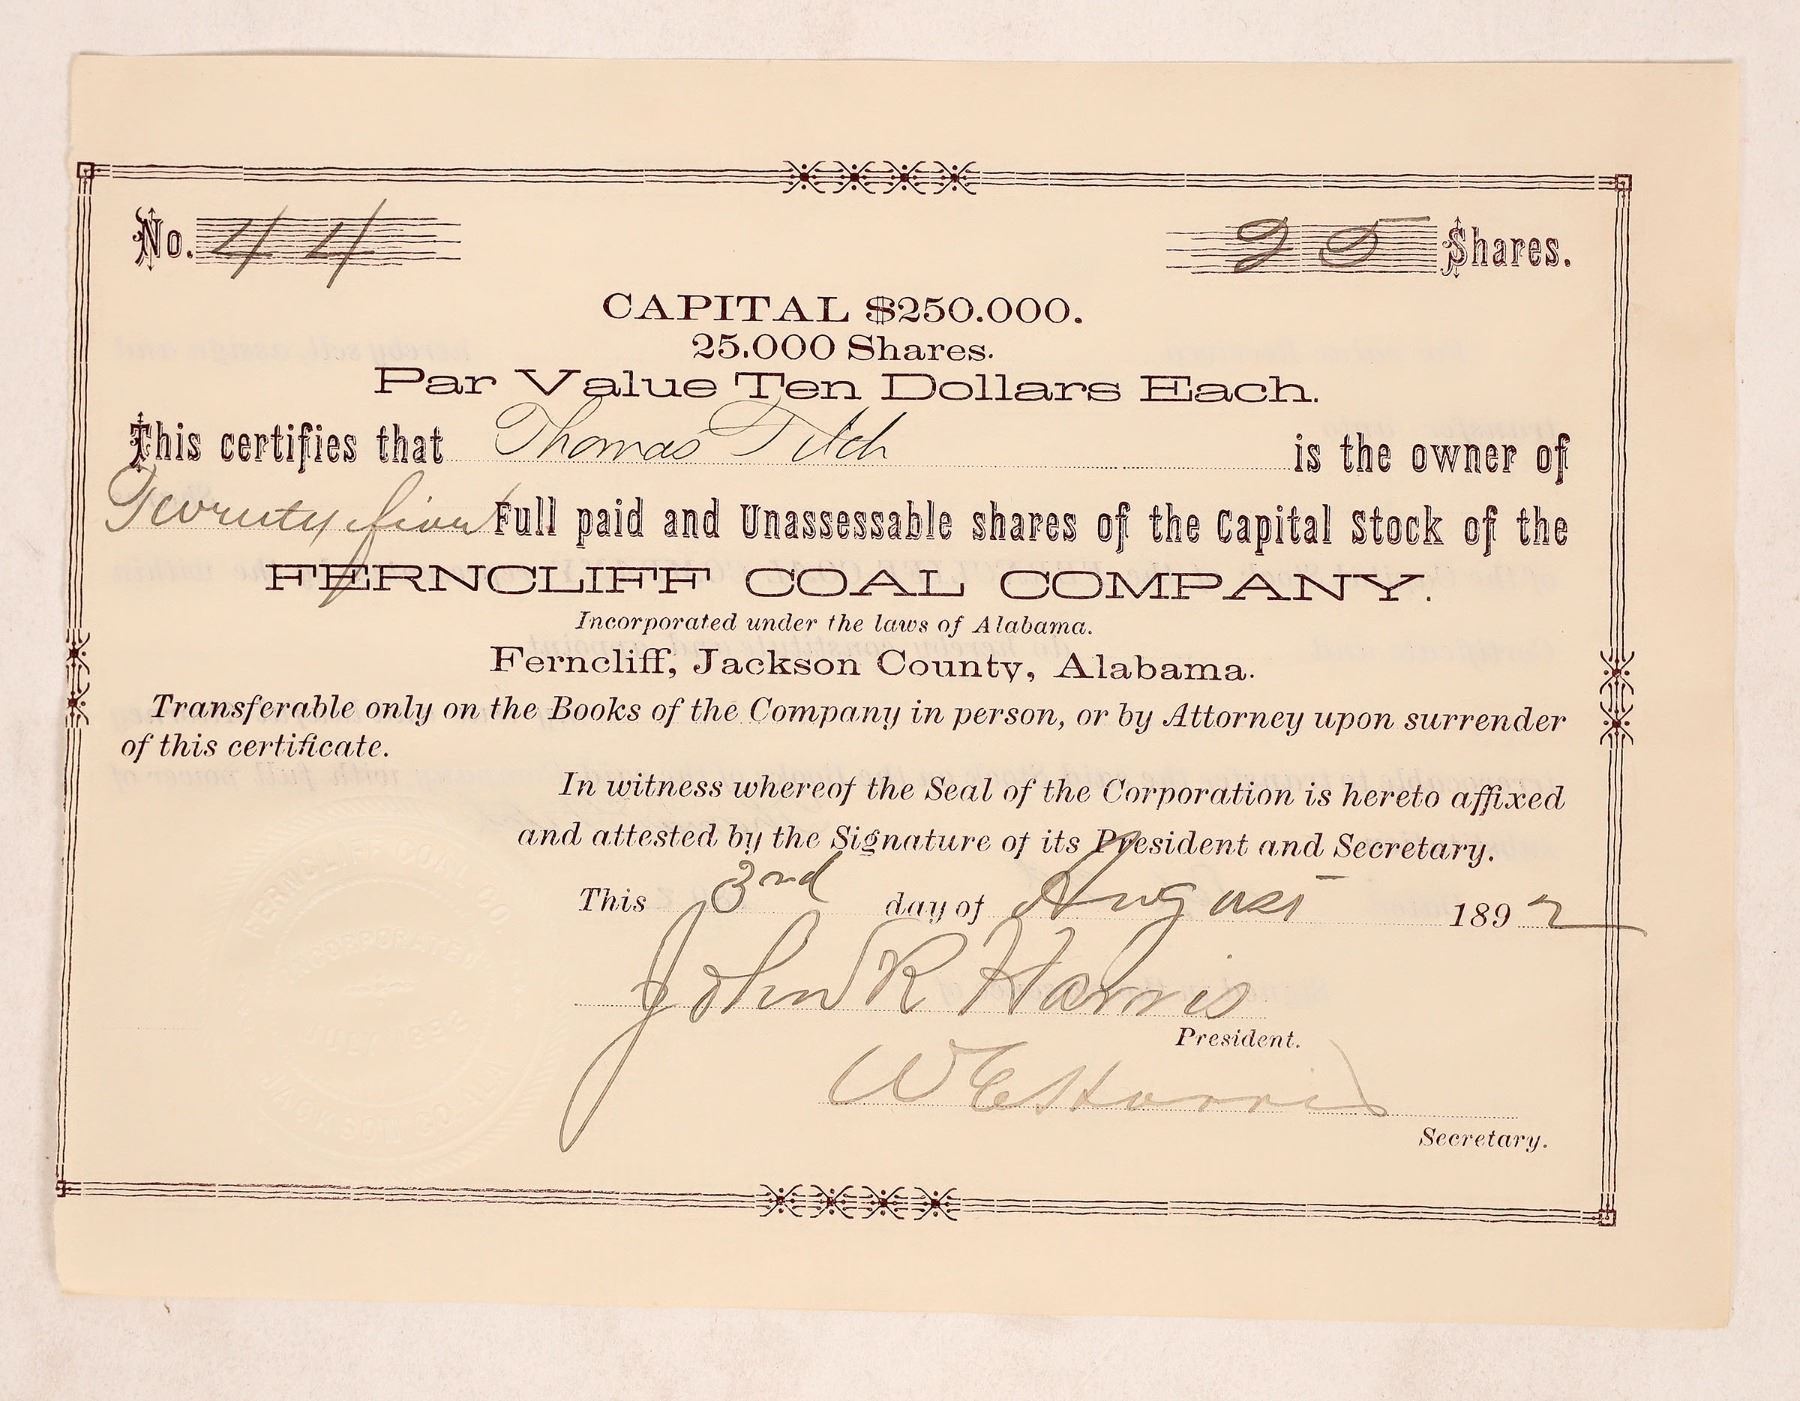 No. 44
25 Shares.
CAPITAL $250.000.
25.000 Shares.
Par Value Ten Dollars Each.
This certifies that Thomas Fitch is the owner of
Twenty five Full paid and Unassessable shares of the Capital Stock of the
FERNCLIFF COAL COMPANY.
Incorporated under the laws of Alabama.
Ferncliff, Jackson County, Alabama.
Transferable only on the Books of the Company in person, or by Attorney upon surrender
of this certificate.
In witness whereof the Seal of the Corporation is hereto affixed
and attested by the Signature of its President and Secretary.
This 3rd day of August 1892
John R Harris
President.
W E Harris
Secretary.
FERNCLIFF COAL CO.
INCORPORATED
JULY 1892
JACKSON CO. ALA.